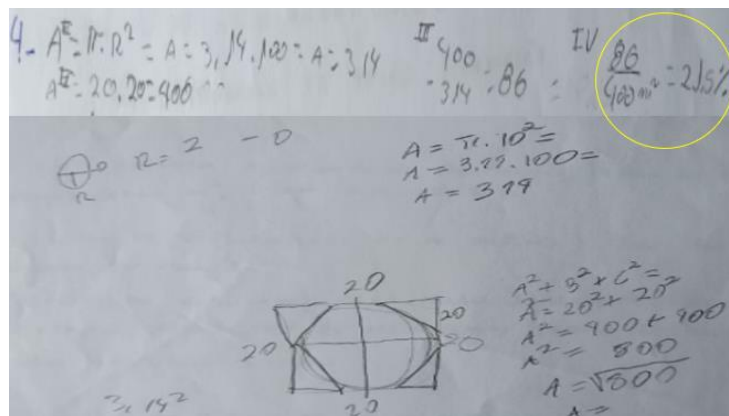 4- A^I = π.R² = A = 3,14.100 = A = 314
A^II = 20.20 = 400
III 400 - 314 = 86
IV 86/400m² = 21,5%
R = 2 - 0
R
A = π.10² =
A = 3.14.100 =
A = 314
20
20
20
20
20
A² + B² + C² =
A = 20² + 20²
A² = 400 + 400
A² = 800
A = √800
A =
3,14²